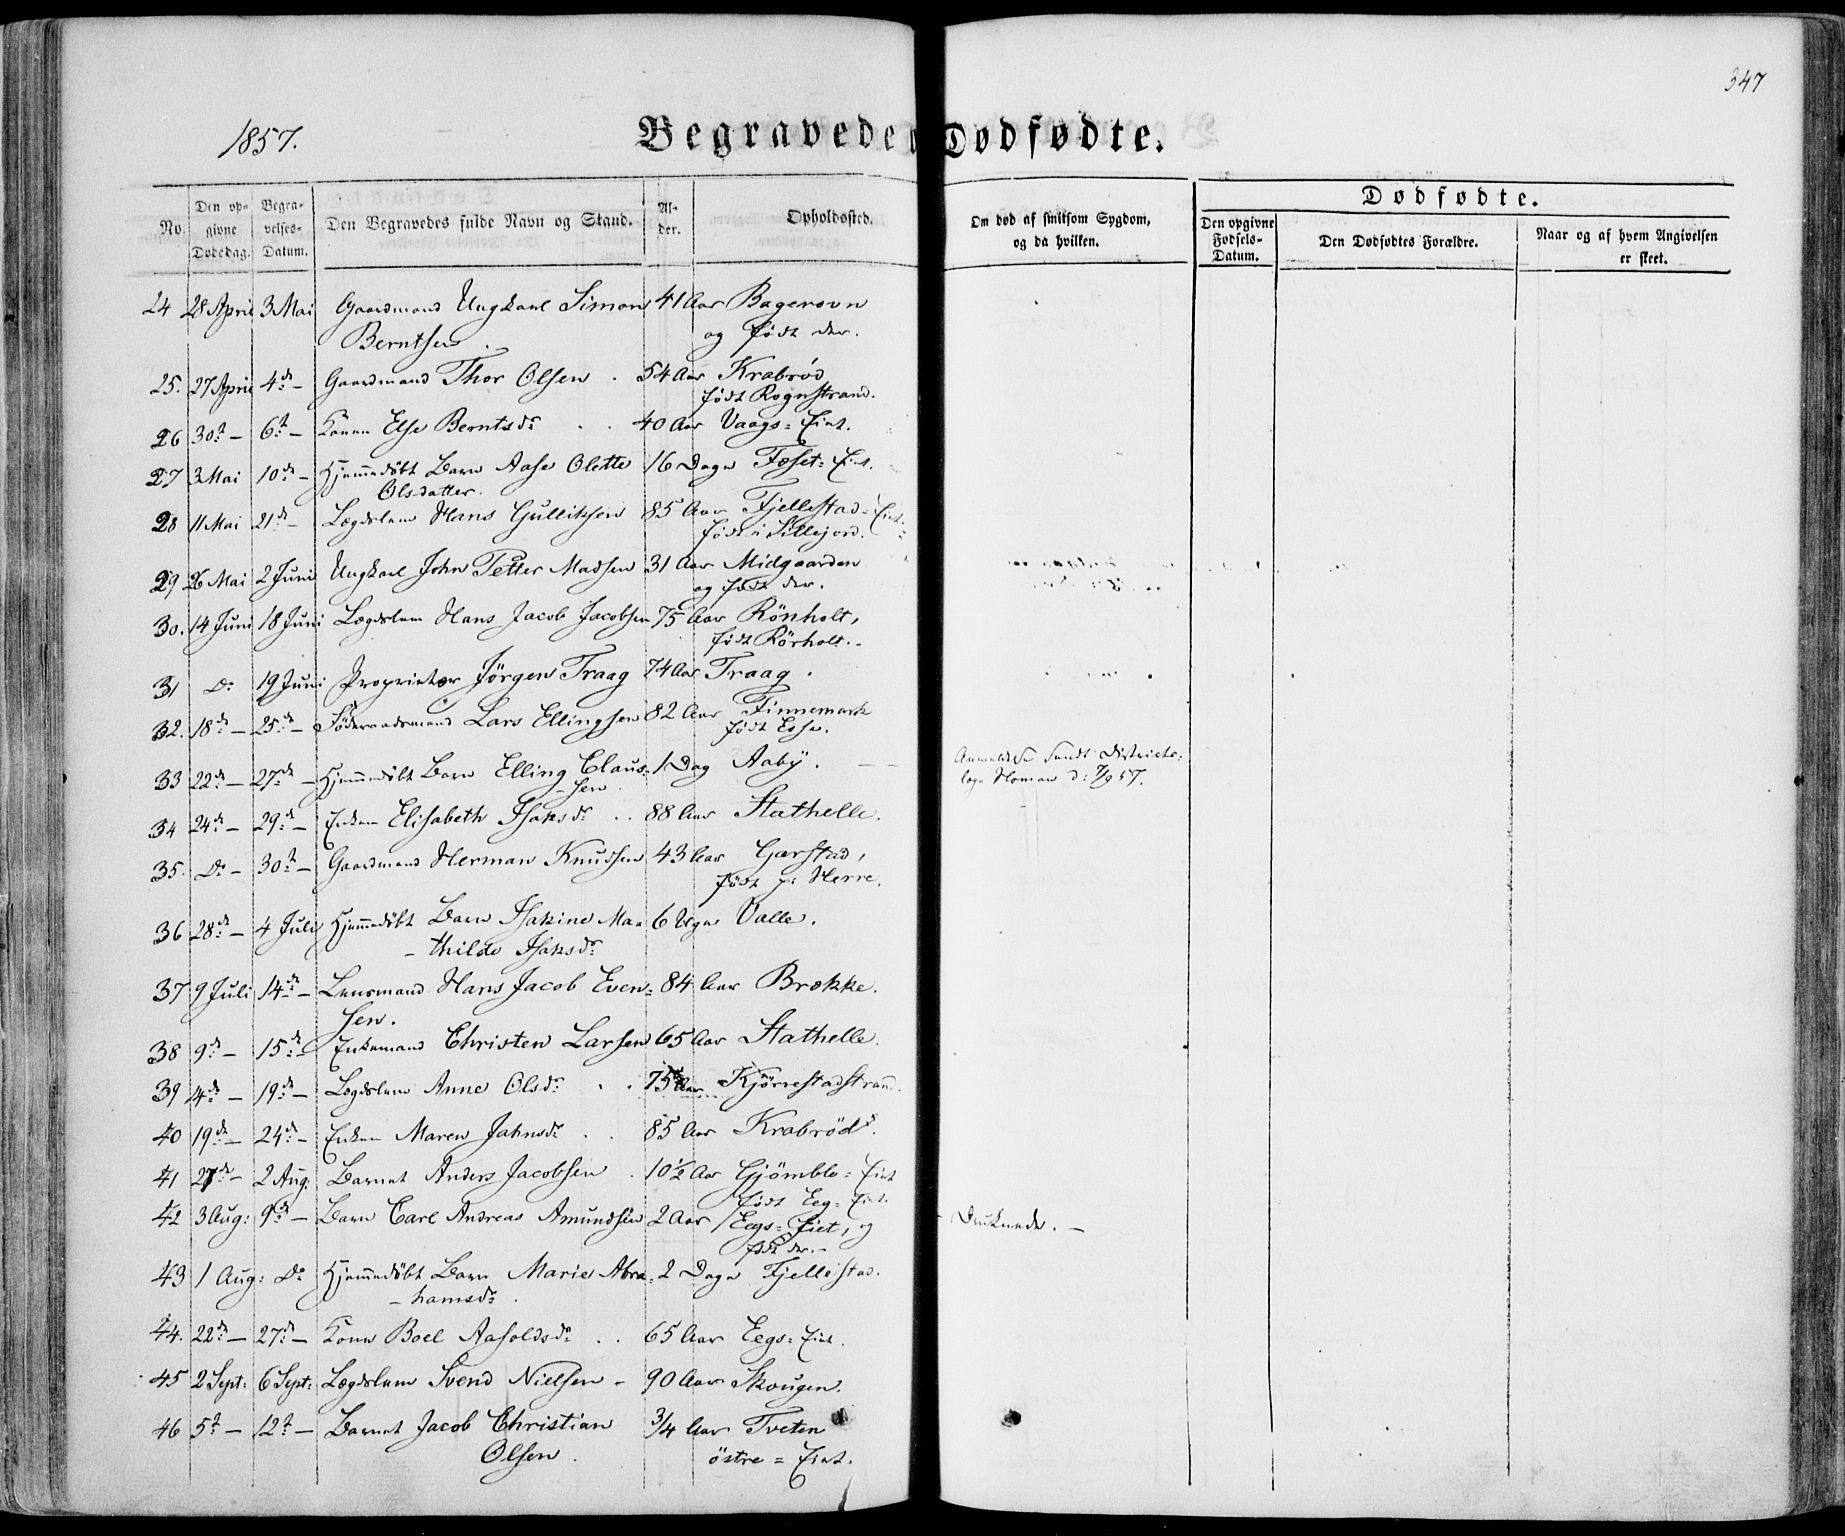 347
1857.
Begravede og Dødfødte.
No.
Den op-
givne
Dødedag.
Begra-
velses-
Datum.
Den Begravedes fulde Navn og Stand.
Al-
der.
Opholdssted.
Om død af smitsom Sygdom,
og da hvilken.
Dødfødte.
Den opgivne
Fødsels-
Datum.
Den Dødfødtes Forældre.
Naar og af hvem Angivelsen
er skeet.
24 28 April 3 Mai Gaardmand Ungkarl Simon 41 Aar Bagerovn
Berntsen . og født der.
25. 27 April 4de — Gaardmand Thor Olsen . 54 Aar Krabrød
født Rognstrand.
26 30te — 6te — Konen Else Berntsdr . . 40 Aar Vaags= Eiet.
27 3 Mai 10de — Hjemmedøbt Barn Aase Olette 16 Dage Foset= Eiet.
Olsdatter.
28 11 Mai 21de — Lægdslem Hans Gulliksen 85 Aar Fjellestad= Eiet.
født i Sillejord.
29 26 Mai 2 Juni Ungkarl John Petter Madsen 31 Aar Midgaarden
og født der.
30. 14 Juni 18 Juni Lægdslem Hans Jacob Jacobsen 75 Aar Rönholt,
født Rörholt.
31 Do 19 Juni Proprietær Jørgen Traag 74 Aar Traag .
32. 18de — 25de — Föderaadsmand Lars Ellingsen 82 Aar Finnemark
født Esse.
33 22de — 27de — Hjemmedøbt Barn Elling Claus= 1 Dag Aaby .
— sen.
Anmeldt
Districts=
læge Homan d: 7/9 57.
34 24de — 29de — Enken Elisabeth Isaksdr . . 88 Aar Stathelle.
35. Do — 30te — Gaardmand Herman Knudsen 43 Aar Garstad,
født p: Herre.
36 28de — 4 Juli Hjemmedøbt Barn Isakine Ma= 6 Uger Valle.
— thilde Isaksdr
37 9 Juli 14de — Lensmand Hans Jacob Even= 84 Aar Brække.
sen.
38 9de — 15de — Enkemand Christen Larsen 65 Aar Stathelle.
39 14de — 19de — Lægdslem Anne Olsdr . . 75 Aar Kjørrestadstrand.
40 19de — 24de — Enken Maren Jahnsdr . . 85 Aar Krabröd.
41 27de — 2 Aug: Barnet Anders Jacobsen . 10½ Aar Gjömble= Eiet
født Eeg= Eiet.
42 3 Aug: 9de — Barn Carl Andreas Amundsen 2 Aar Eegs= Eiet, og
født der.—
Druknede. —
43 1 Aug: Do Hjemmedøbt Barn Marie Abra= 2 Dage Fjellestad.
— hamsdr .
44. 22de — 27de — Konen Boel Aasoldsdr . . 65 Aar Eegs= Eiet.
45 2 Sept: 6 Sept: Lægdslem Svend Nielsen — 90 Aar Skougen.
46 5te — 12te — Barnet Jacob Christian 3/4 Aar Tveten
Olsen . östre = Eiet.